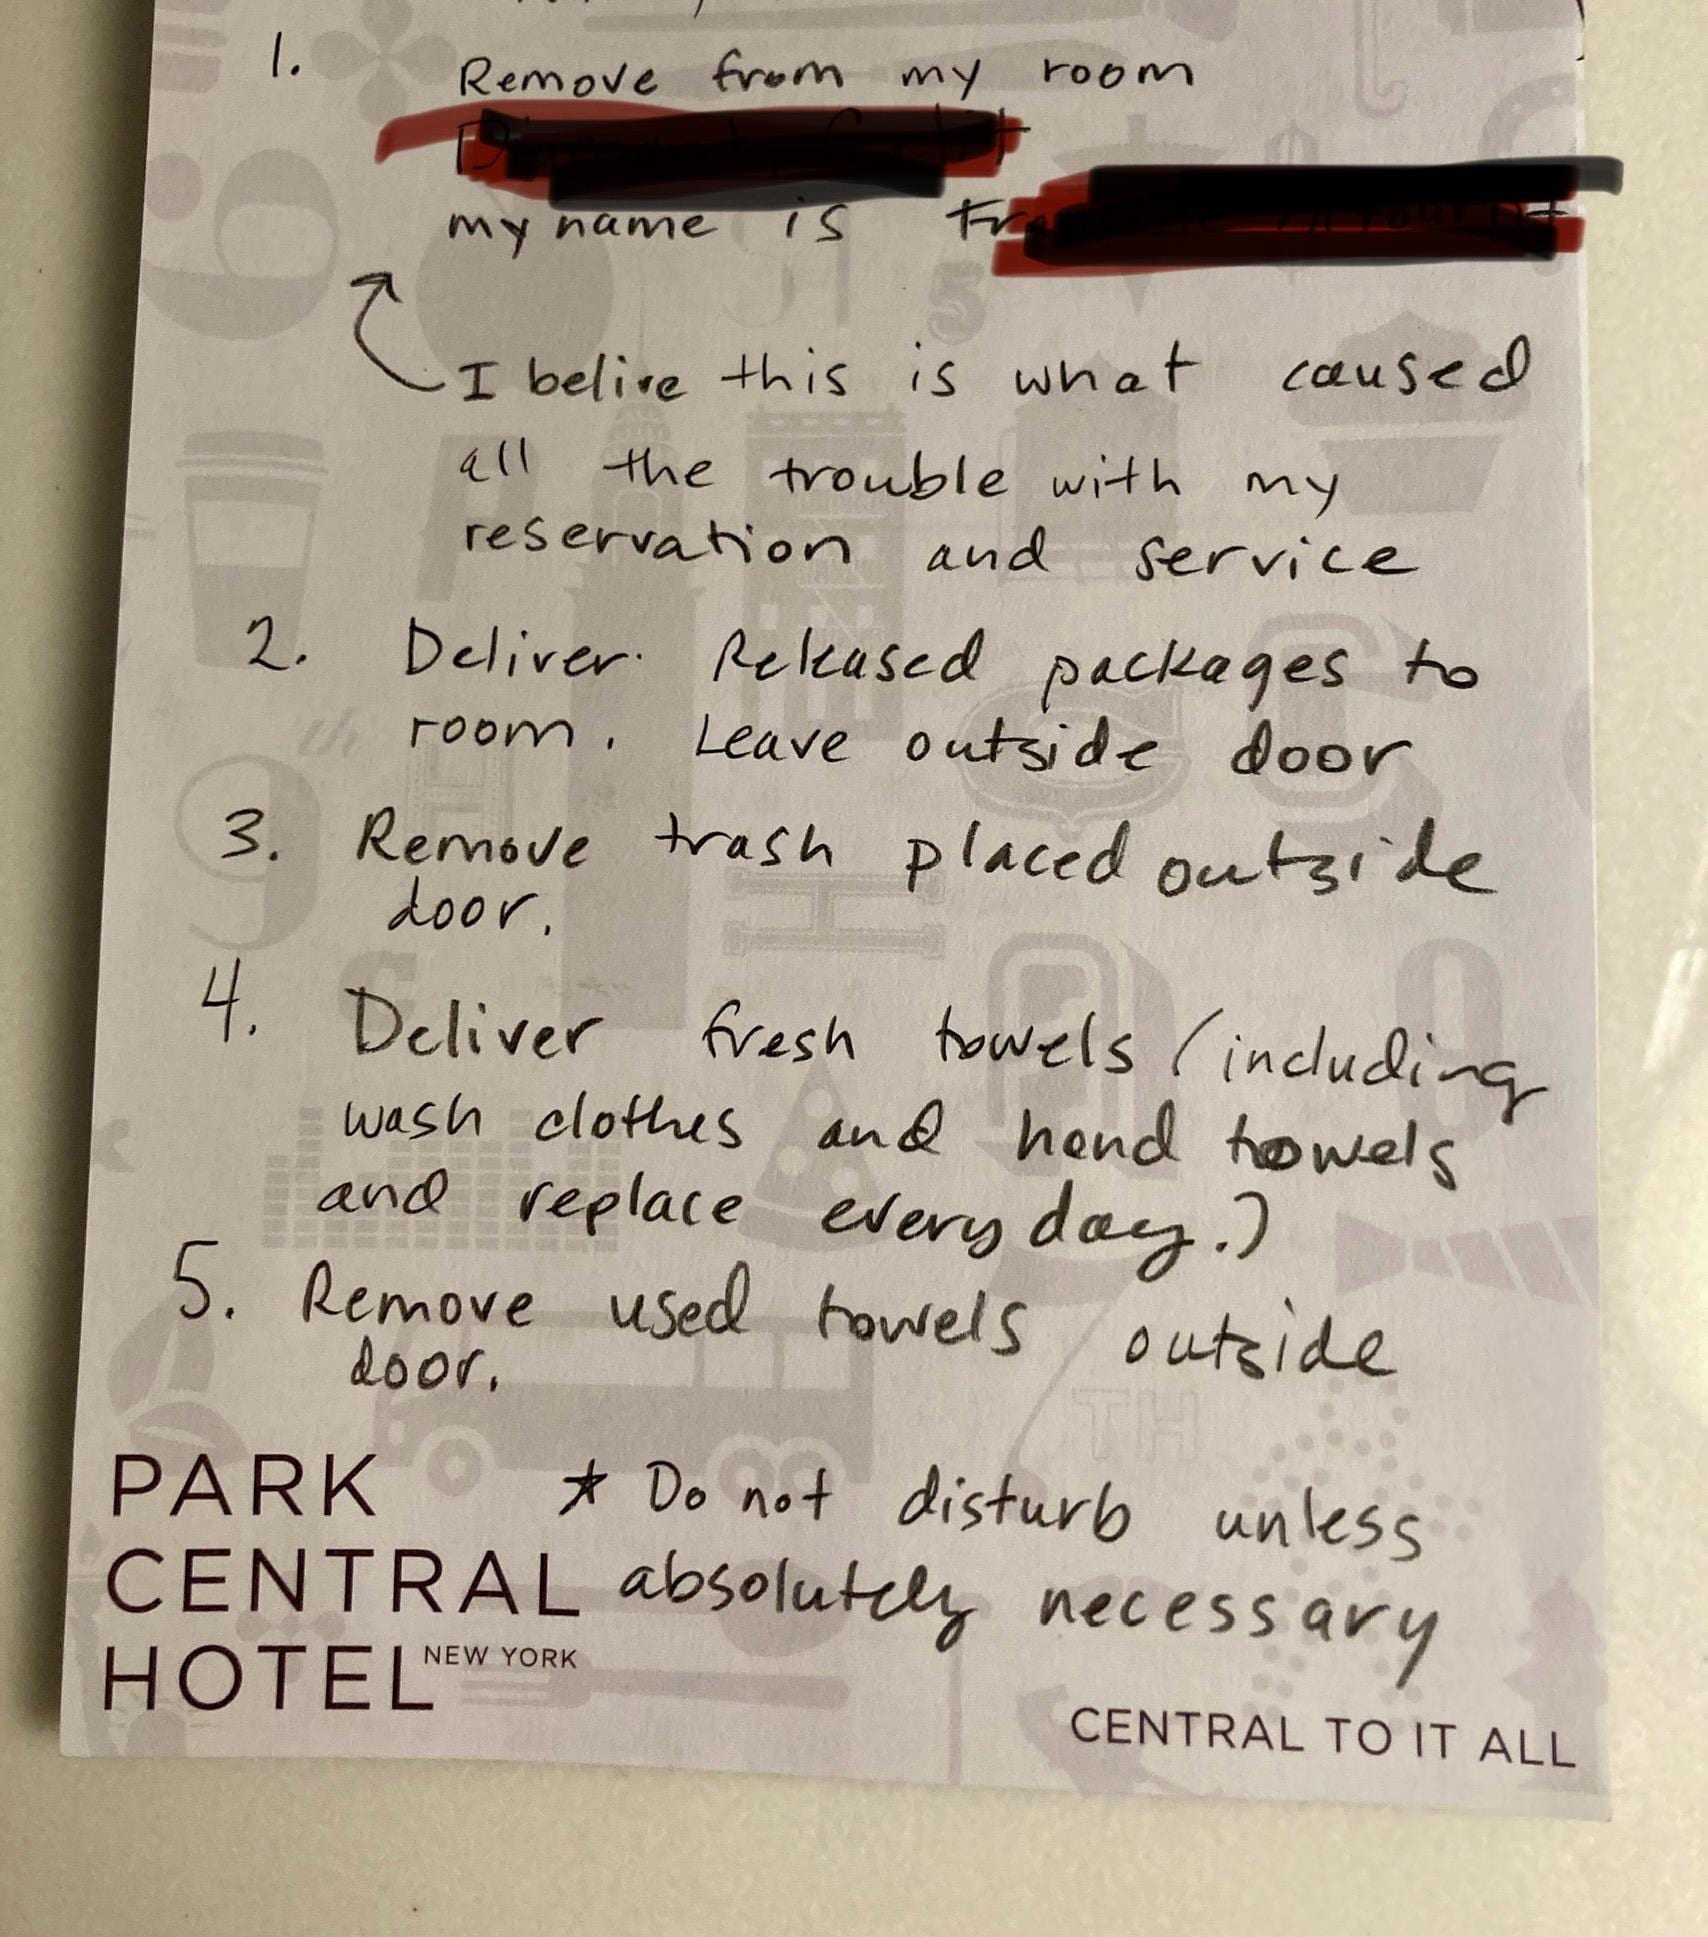 1. Remove from my room
my name is
I belive this is what caused
all the trouble with my
reservation and service
2. Deliver. Released packages to
room. Leave outside door
3. Remove trash placed outside
door.
4. Deliver fresh towels (including
wash clothes and hand towels
and replace every day.)
5. Remove used towels outside
door.
* Do not disturb unless
absolutely necessary
PARK
CENTRAL
HOTEL NEW YORK
CENTRAL TO IT ALL
5
TH